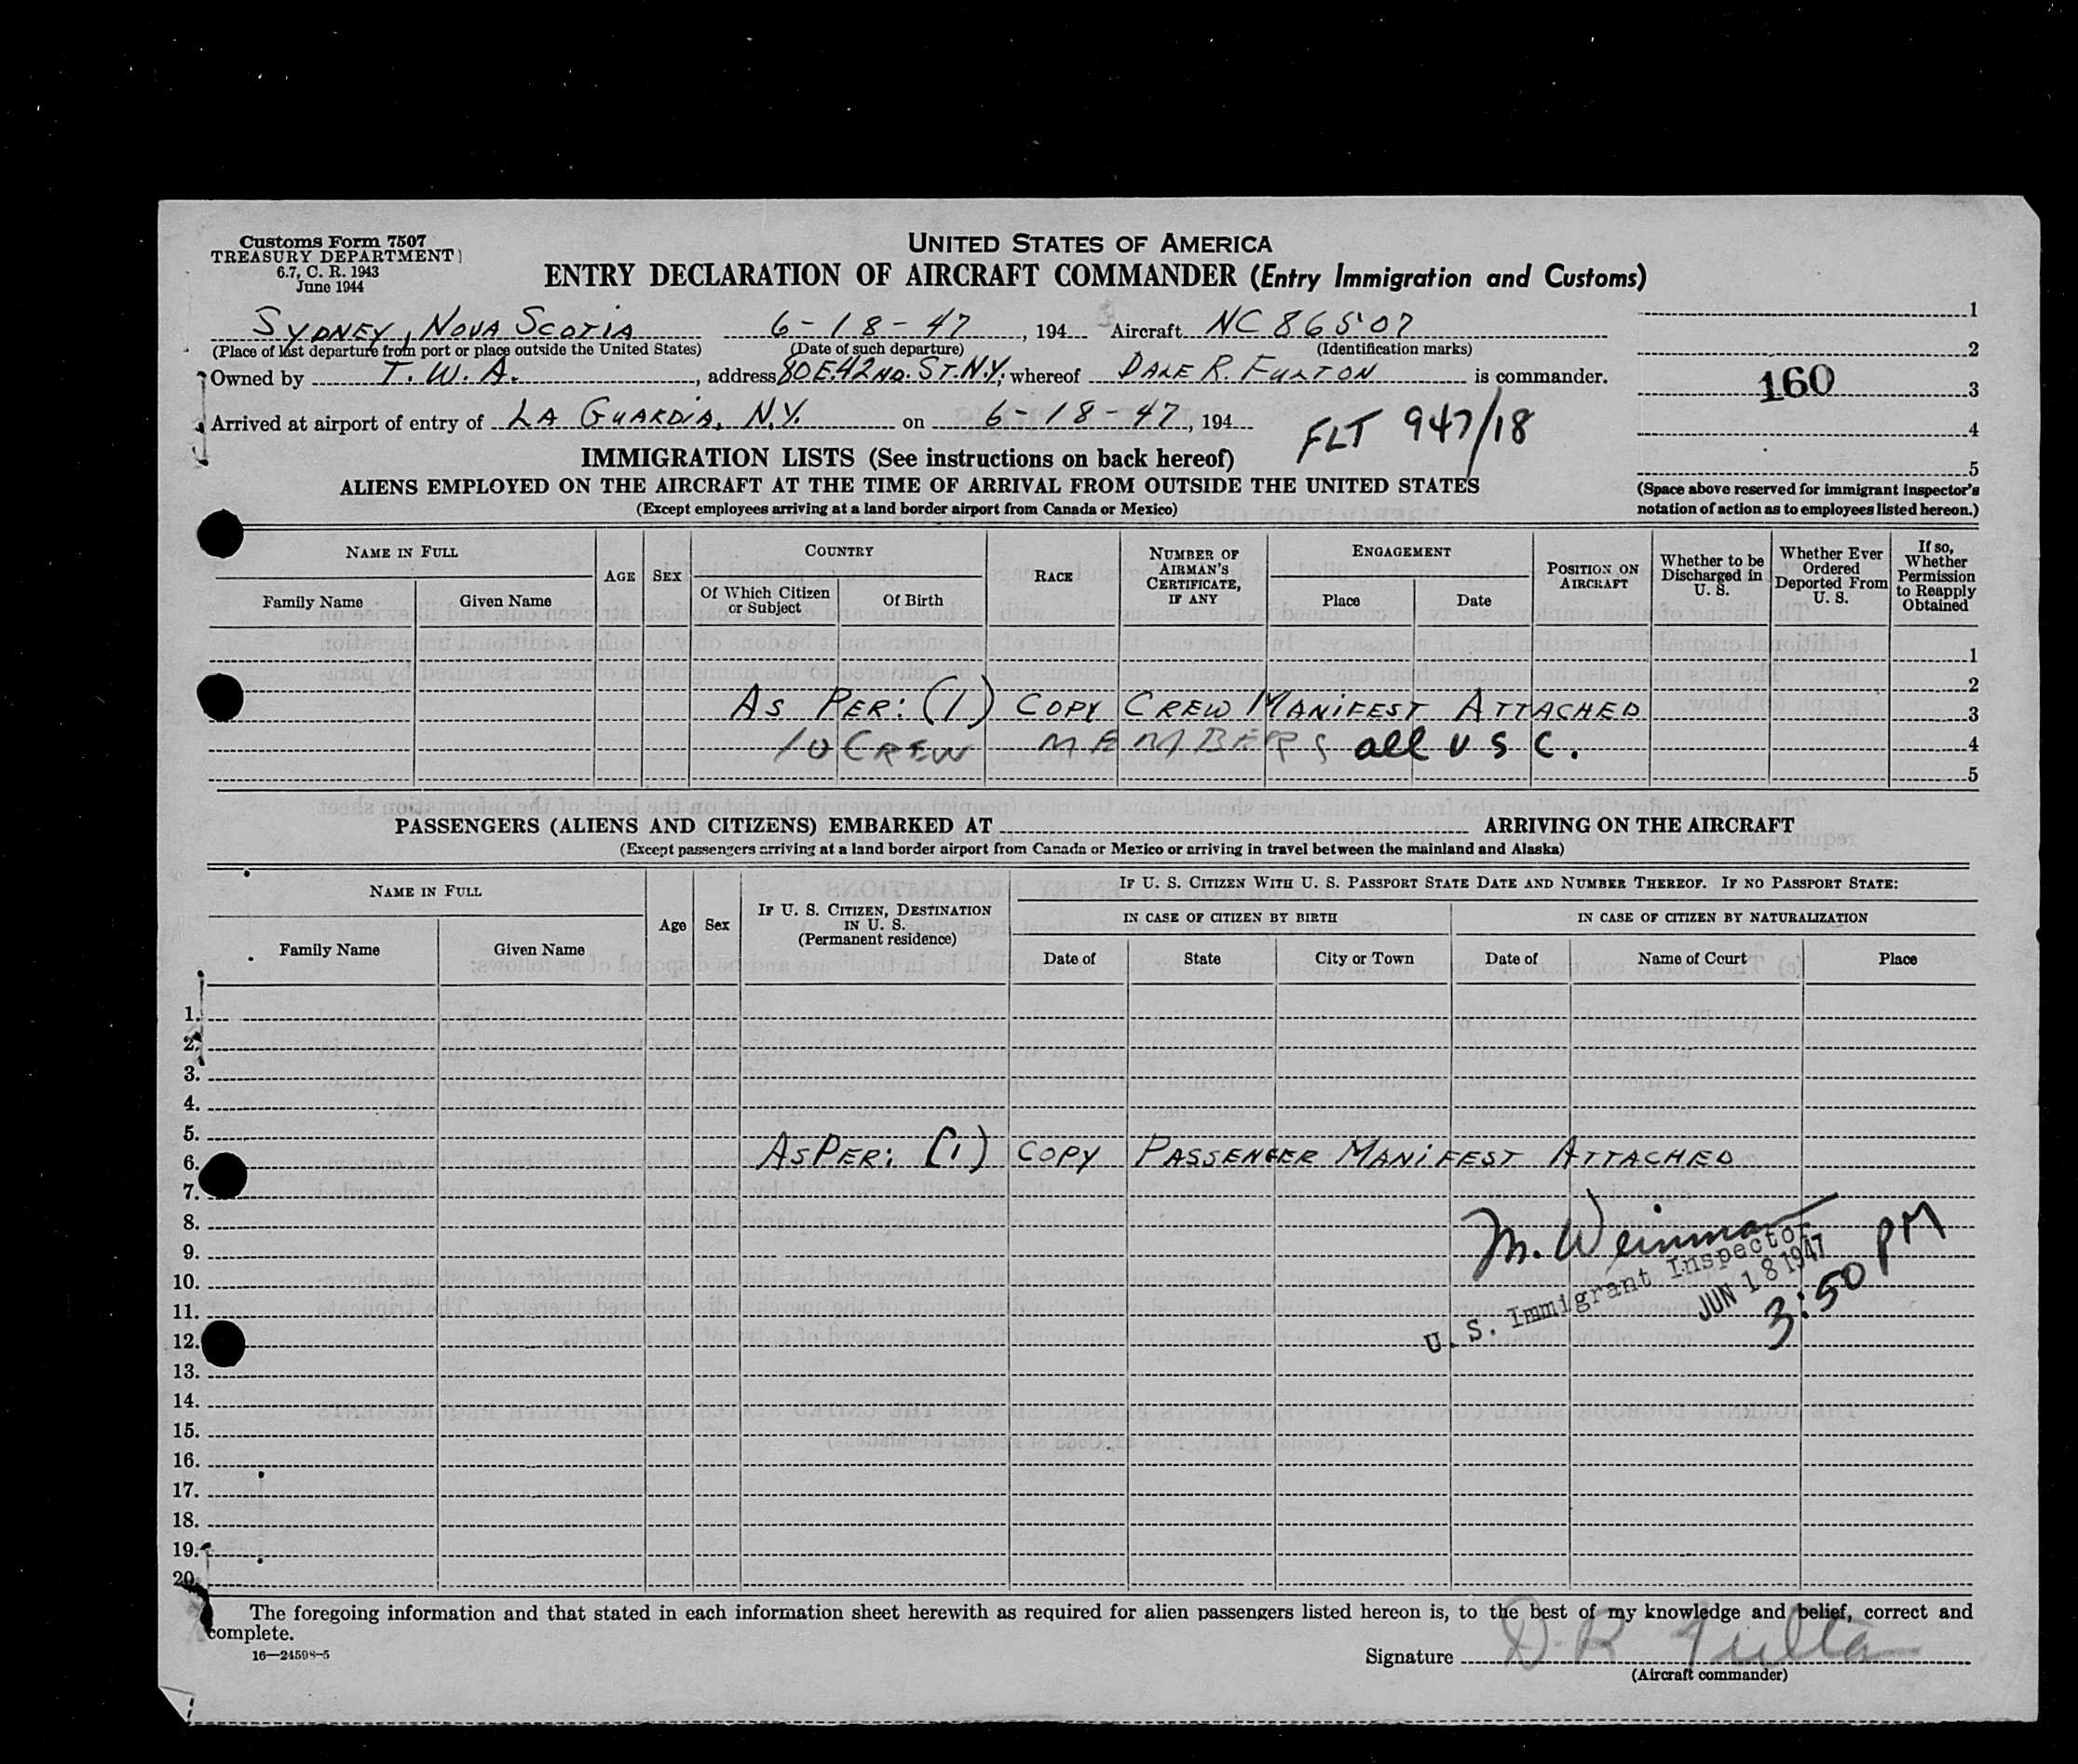 Customs Form 7507
TREASURY DEPARTMENT
6.7, C. R. 1943
June 1944
UNITED STATES OF AMERICA
ENTRY DECLARATION OF AIRCRAFT COMMANDER (Entry Immigration and Customs)
SYDNEY, NOVA SCOTIA 6-18-47, 194 Aircraft NC 86507
(Place of last departure from port or place outside the United States) (Date of such departure) (Identification marks)
Owned by T. W. A., address 80 E. 42ND. ST. N.Y. whereof DALE R. FULTON is commander.
Arrived at airport of entry of LA GUARDIA, N.Y. on 6-18-47, 194
FLT 947/18
1
2
160 3
4
5
(Space above reserved for immigrant inspector's notation of action as to employees listed hereon.)
IMMIGRATION LISTS (See instructions on back hereof)
ALIENS EMPLOYED ON THE AIRCRAFT AT THE TIME OF ARRIVAL FROM OUTSIDE THE UNITED STATES
(Except employees arriving at a land border airport from Canada or Mexico)
NAME IN FULL
Family Name Given Name
AGE SEX
COUNTRY
Of Which Citizen or Subject Of Birth
RACE
NUMBER OF AIRMAN'S CERTIFICATE, IF ANY
ENGAGEMENT
Place Date
POSITION ON AIRCRAFT
Whether to be Discharged in U. S.
Whether Ever Ordered Deported From U. S.
If so, Whether Permission to Reapply Obtained
1
2
AS PER: (1) COPY CREW MANIFEST ATTACHED 3
10 CREW MEMBERS all U S C. 4
5
PASSENGERS (ALIENS AND CITIZENS) EMBARKED AT ARRIVING ON THE AIRCRAFT
(Except passengers arriving at a land border airport from Canada or Mexico or arriving in travel between the mainland and Alaska)
NAME IN FULL
Family Name Given Name
Age Sex
IF U. S. CITIZEN, DESTINATION IN U. S.
(Permanent residence)
IF U. S. CITIZEN WITH U. S. PASSPORT STATE DATE AND NUMBER THEREOF. IF NO PASSPORT STATE:
IN CASE OF CITIZEN BY BIRTH IN CASE OF CITIZEN BY NATURALIZATION
Date of State City or Town Date of Name of Court Place
1.
2.
3.
4.
5.
6. AS PER: (1) COPY PASSENGER MANIFEST ATTACHED
7.
8. M. Weinman
9. U. S. Immigrant Inspector
10. JUN 18 1947
11. 3:50 PM
12.
13.
14.
15.
16.
17.
18.
19.
20.
The foregoing information and that stated in each information sheet herewith as required for alien passengers listed hereon is, to the best of my knowledge and belief, correct and
complete.
16—24598-5
Signature D R Fulton
(Aircraft commander)